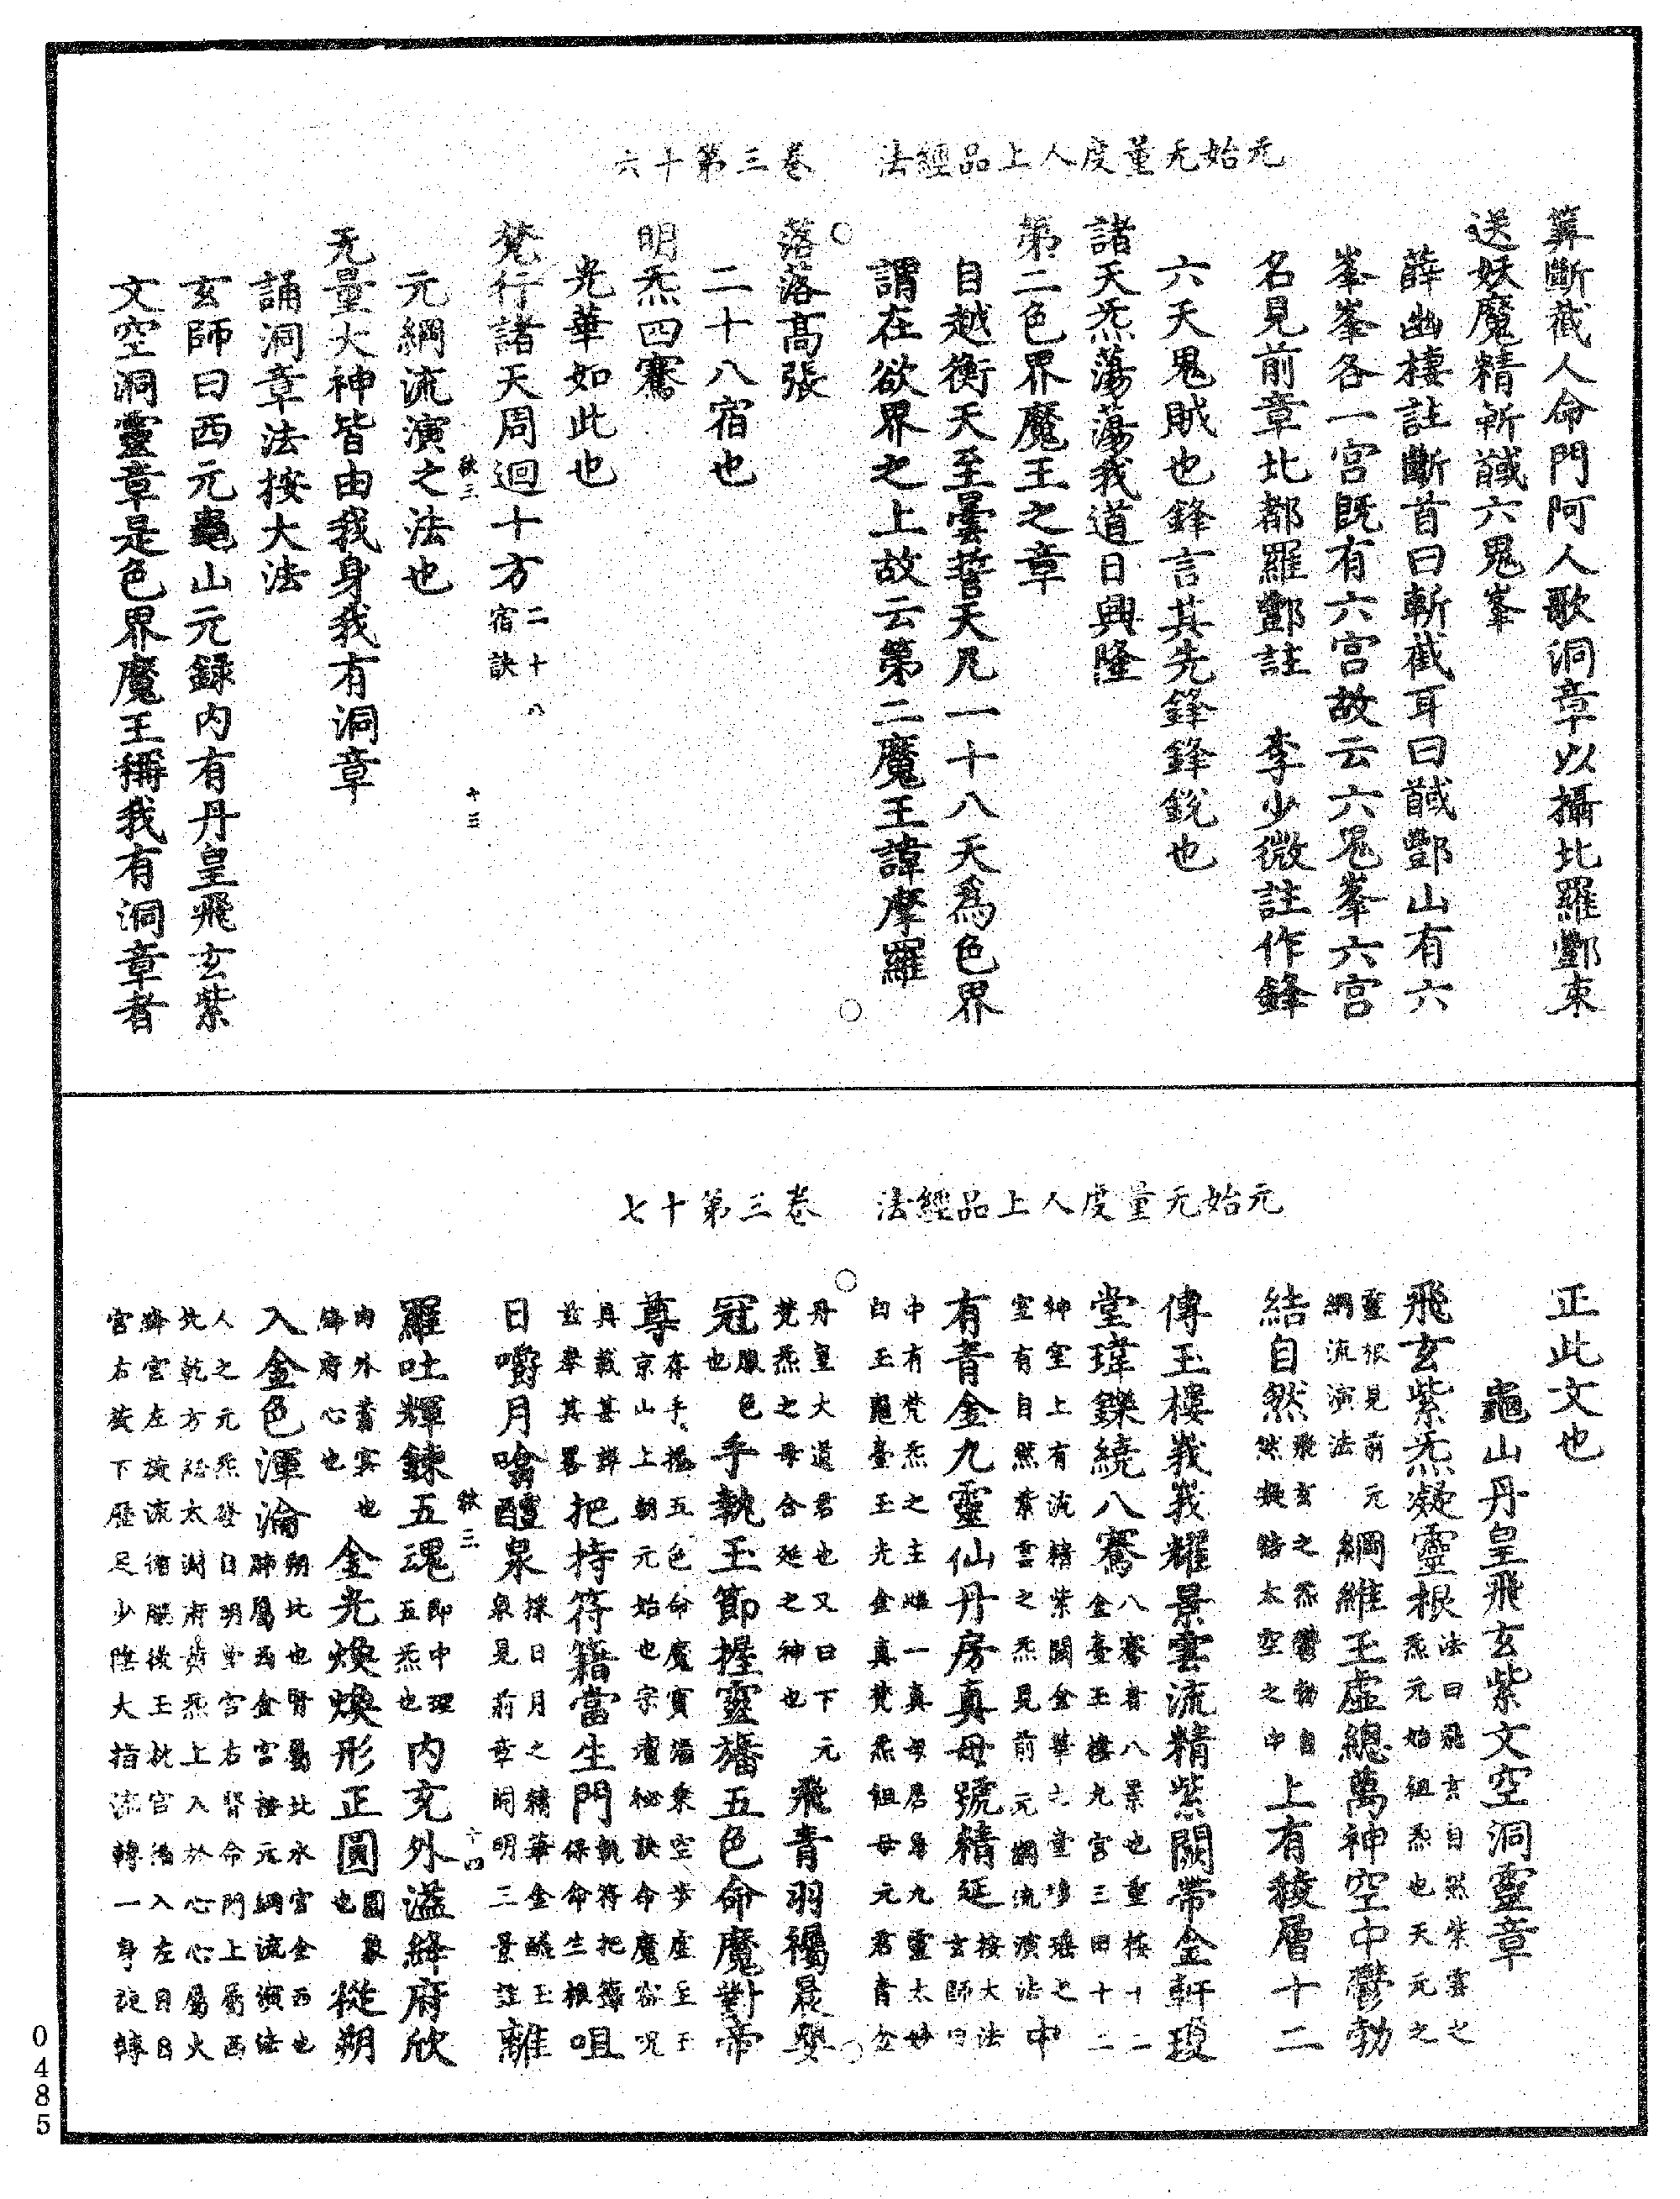 元始无量度人上品經法　卷三第十六
筭斷截人命門阿人歌洞章以攝北羅酆束
送妖魔精斬馘六鬼峯
薛幽棲註斷首曰斬截耳曰馘酆山有六
峯峯各一宫既有六宫故云六鬼峯六宫
名見前章北都羅酆註　李少微註作鋒
六天鬼賊也鋒言其先鋒鋒銳也
諸天炁蕩蕩我道日興隆
第二色界魔王之章
自越衡天至曇誓天凡一十八天為色界
謂在欲界之上故云第二魔王諱摩羅
落落高張
二十八宿也
明炁四騫
光華如此也
梵行諸天周迴十方二十八宿訣
秋三　十三
元綱流演之法也
无量大神皆由我身我有洞章
誦洞章法按大法
玄師曰西元龜山元録内有丹皇飛玄紫
文空洞靈章是色界魔王稱我有洞章者
元始无量度人上品經法　卷三第十七
正此文也
龜山丹皇飛玄紫文空洞靈章
飛玄紫炁凝靈根法曰飛玄自然紫雲之炁元始祖炁也天元之
靈根見前元綱流演法　綱維玉虛總萬神空中鬱勃
結自然飛玄之炁鬱勃自然凝結太空之中　上有稜層十二
傳玉樓峩峩耀景雲流精紫闕帶金軒瓊
堂瑋鑠繞八騫八騫者八景也重樓十二金臺玉樓九宫三田十二
神室上有流精紫闕金華之堂瑤之室有自然紫雲之炁見前元綱流演法　中
有青金九靈仙丹房真母號精延按大法玄師曰
中有梵炁之主雌一真母居九靈太妙白玉龜臺玉光金真梵炁祖母元君青金
丹皇大道君也又曰下元梵炁之母合延之神也　飛青羽褐晨嬰
冠服色也　手執玉節握靈旛五色命魔對帝
尊存手握五色命魔寶旛乘空步虛至玉京山上朝元始也宗壇秘訣命魔密呪
具載甚詳兹舉其畧　把持符籍當生門執符把籍保命生根　咀
日嚼月噏醴泉採日月之精華金醴玉泉見前章開明三景註　離
秋三　十四
羅吐輝鍊五魂即中理五炁也　内充外溢絳府欣
内外書實也絳府心也　金光煥煥形正圓圓象也　從朔
入金色渾淪朔北也腎屬北水宫金西也肺屬西金宫按元綱流演法
人之元炁發自明堂宫右腎命門上屬西北乾方結太淵府炁上入於心心屬火
絳宫左旋流循腦後玉枕宫循入左目日宫右旋下歷足少陰大指流轉一身旋轉
0485